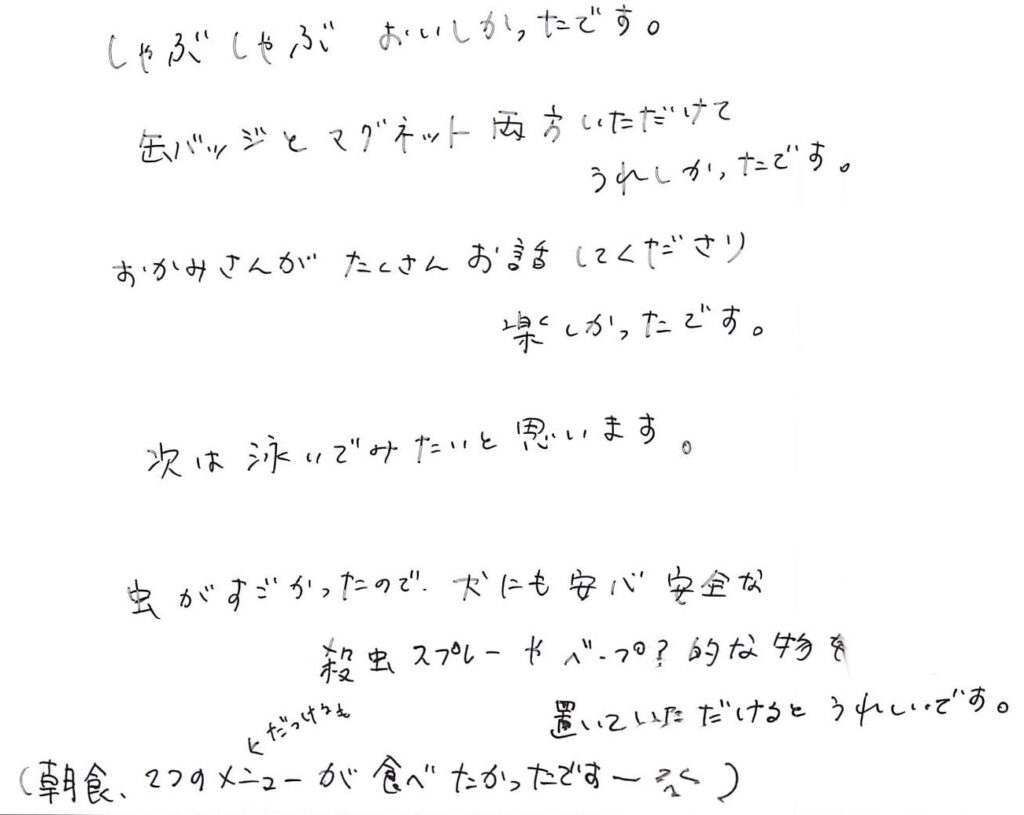 しゃぶしゃぶ おいしかったです。
缶バッジとマグネット両方いただけて
うれしかったです。
おかみさんが たくさんお話してくださり
楽しかったです。
次は泳いでみたいと思います。
虫がすごかったので、犬にも安心安全な
殺虫スプレーやベープ?的な物を
置いていただけるとうれしいです。
(朝食、2つのメニューが食べたかったですー泣)